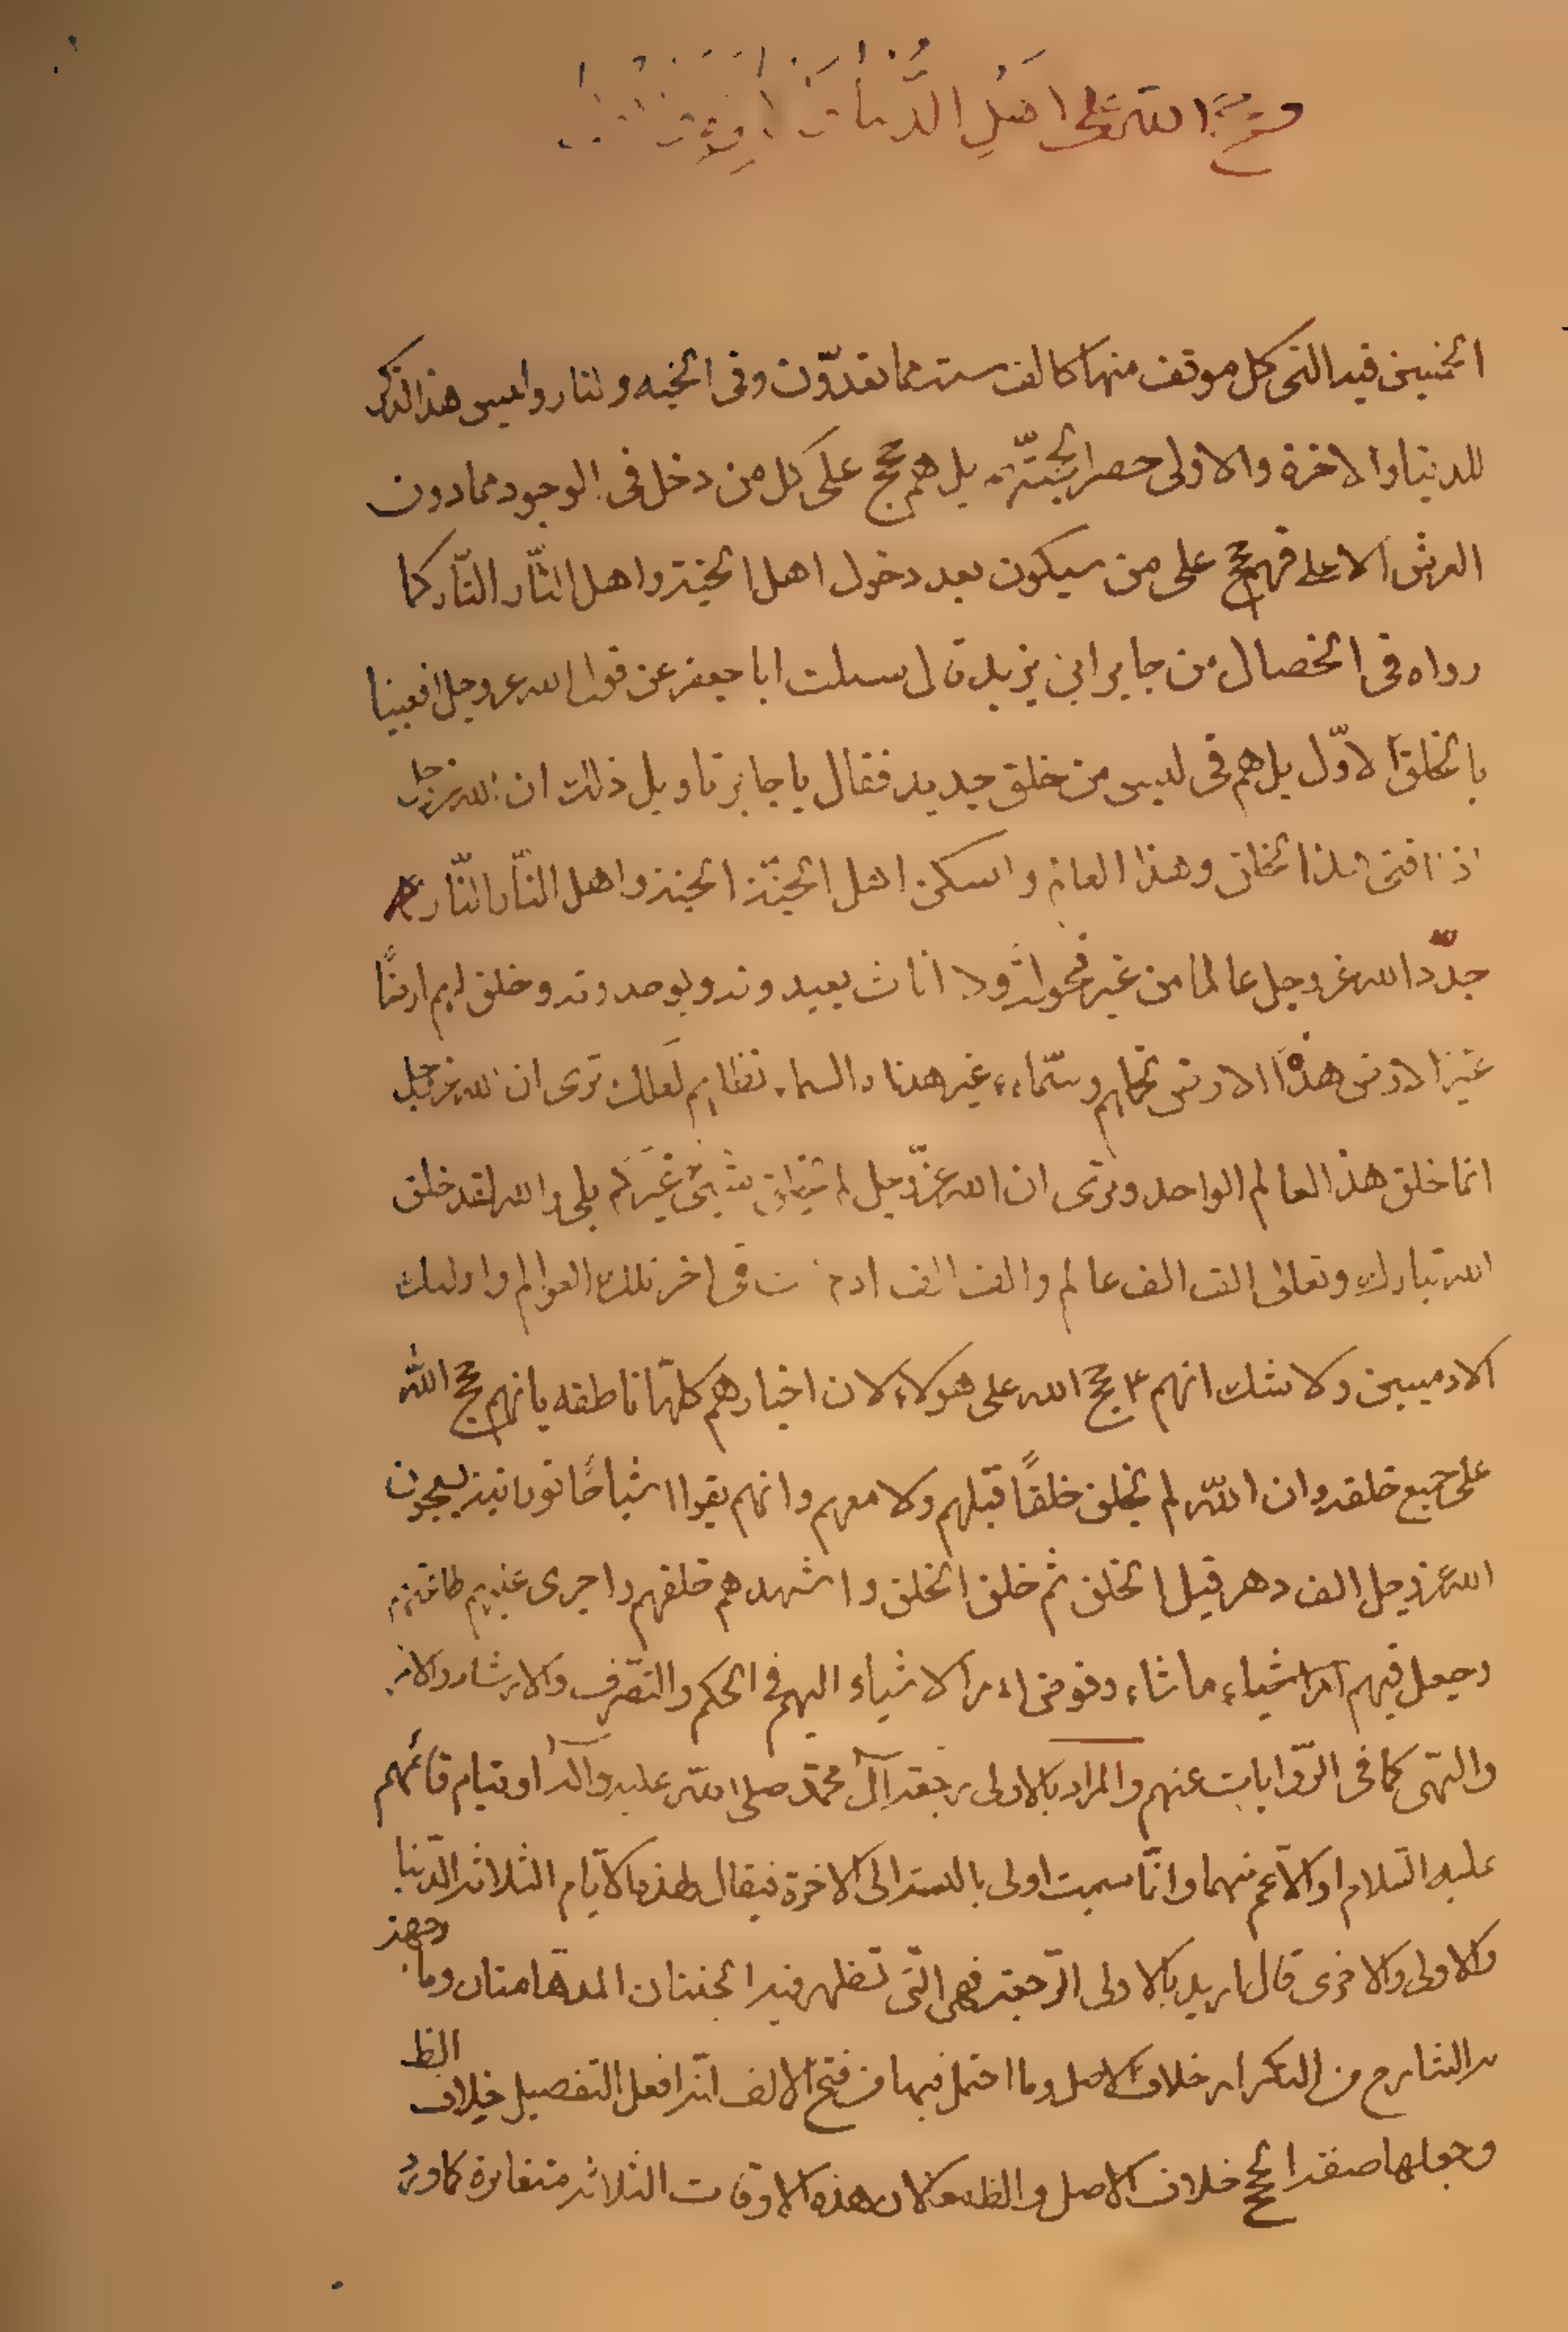 وحجج الله على اهل الدنيا
الخمسين فيه التى كل موقف منها كالف سنة مما تعدّون وفى الجنه والنار وليس هذا الذكر
للدنيا والاخرة والاولى حصرا لحجيّته بل هم حجج على كل من دخل فى الوجود مما دون
العرش الاعلى فهم حجج على من سيكون بعد دخول اهل الجنة واهل النّار النّار كما
رواه فى الخصال عن جابر ابن يزيد قال سئلت ابا جعفر عن قول الله عز وجل افعيينا
بالخلق الاوّل بل هم فى لبس من خلق جديد فقال يا جابر تاويل ذلك ان الله عز وجل
اذا افنى هذا الخلق وهذا العالم واسكن اهل الجنّة الجنة واهل النّار النّار
جدّد الله عز وجل عالما من غير فحولة ولا اناث يعبدونه ويوحدونه وخلق لهم ارضًا
غير الارض هذه الارض تحملهم وسّماء غير هذه السماء تظلهم لعلك ترى ان الله عز وجل
انما خلق هذا العالم الواحد وترى ان الله عزّ وجل لم يخلق شيئ غيركم بلى والله لقد خلق
الله تبارك وتعالى الف الف عالم والف الف ادم انت فى اخر تلك العوالم واولئك
الادميين ولا شك انهم ع حجج الله على هولاء لان اخبارهم كلهّا ناطقه بانهم حجج الله
على جميع خلقه وان اللّه لم يخلق خلقًا قبلهم ولا معهم وانهم بقوا اشباحًا نورانية يسبحون
الله عز وجل الف دهر قبل الخلق ثم خلق الخلق واشهدهم خلقهم واجرى عليهم طاعتهم
وجعل فيهم امر اشياء ما شاء وفوض امر الاشياء اليهم فى الحكم والتصّرف والارشاد والامر
والنّهى كما فى الرّوايات عنهم والمراد بالاولى رجعة آل محمّد صلى اللّه عليه وآله او قيام قائمهم
عليه السّلام او الاعّم منهما وانّما سميت اولى بالنسبة الى الاخرة فيقال لهذه الايّام الثلاثة الدّنيا
والاولى والاخرى قال يريد بالاولى الرّجعة فهى التّى تظهر فيه الجنتان المدهّامتان وما وجهه
به الشارح من التكرار خلاف الاصل وما احتمل فيها من فتح الالف انّه افعل التفصيل خلاف الظ
وجعلها صفة الحجج خلاف الاصل والظ معا لان هذه الاوقات الثلاثة متغايرة كما ورد